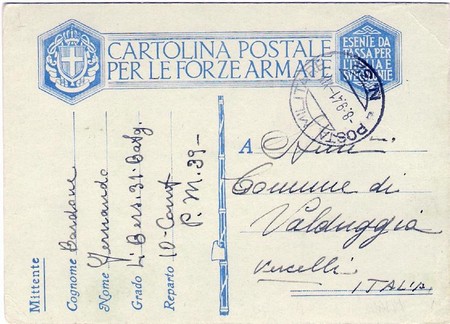 CARTOLINA POSTALE
PER LE FORZE ARMATE
ESENTE DA
TASSA PER
L'ITALIA E
POSTA MILITARE N
8.9.41
A
Comune di
Valduggia
Vercelli
ITALIA
Mittente
Cognome Bardone
Nome Fernando
Grado
Reparto 10 P.M. 39-